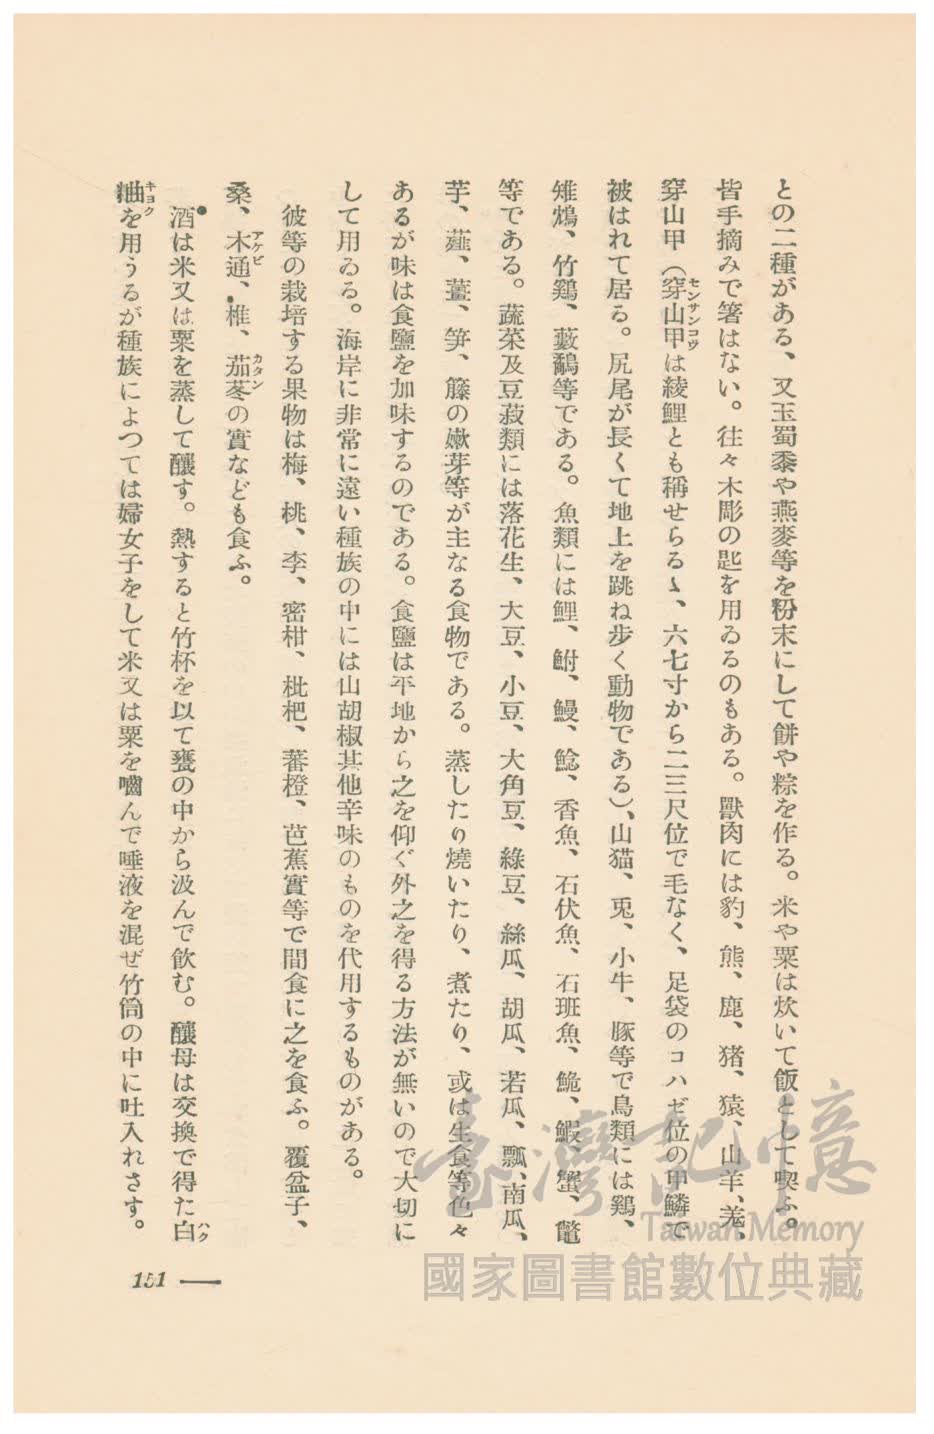 との二種がある、又玉蜀黍や燕麥等を粉末にして餅や粽を作る。米や粟は炊いて飯として喫ふ。
皆手摘みで箸はない。往々木彫の匙を用ゐるのもある。獸肉には豹、熊、鹿、猪、猿、山羊、羗、
穿山甲（穿山甲は綾鯉とも稱せらるゝ、六七寸から二三尺位で毛なく、足袋のコハゼ位の甲鱗で
センサンコウ
被はれて居る。尻尾が長くて地上を跳ね步く動物である）、山猫、兎、小牛、豚等で鳥類には鷄、
雉鴆、竹鷄、藪鷸等である。魚類には鯉、鮒、鰻、鯰、香魚、石伏魚、石班魚、鮠、鰕、蟹、鼈
等である。蔬菜及豆菽類には落花生、大豆、小豆、大角豆、綠豆、絲瓜、胡瓜、若瓜、瓢、南瓜、
芋、薤、薑、笋、籐の嫩芽等が主なる食物である。蒸したり燒いたり、煮たり、或は生食等色々
あるが味は食鹽を加味するのである。食鹽は平地から之を仰ぐ外之を得る方法が無いので大切に
して用ゐる。海岸に非常に遠い種族の中には山胡椒其他辛味のものを代用するものがある。
彼等の栽培する果物は梅、桃、李、密柑、枇杷、蕃橙、芭蕉實等で間食に之を食ふ。覆盆子、
桑、木通、椎、茄苳の實なども食ふ。
アケビ
カタン
酒は米又は粟を蒸して釀す。熱すると竹杯を以て甕の中から汲んで飮む。釀母は交換で得た白
ハク
粬を用うるが種族によつては婦女子をして米又は粟を嚙んで唾液を混ぜ竹筒の中に吐入れさす。
キヨク
151
臺灣記憶
Taiwan Memory
國家圖書館數位典藏